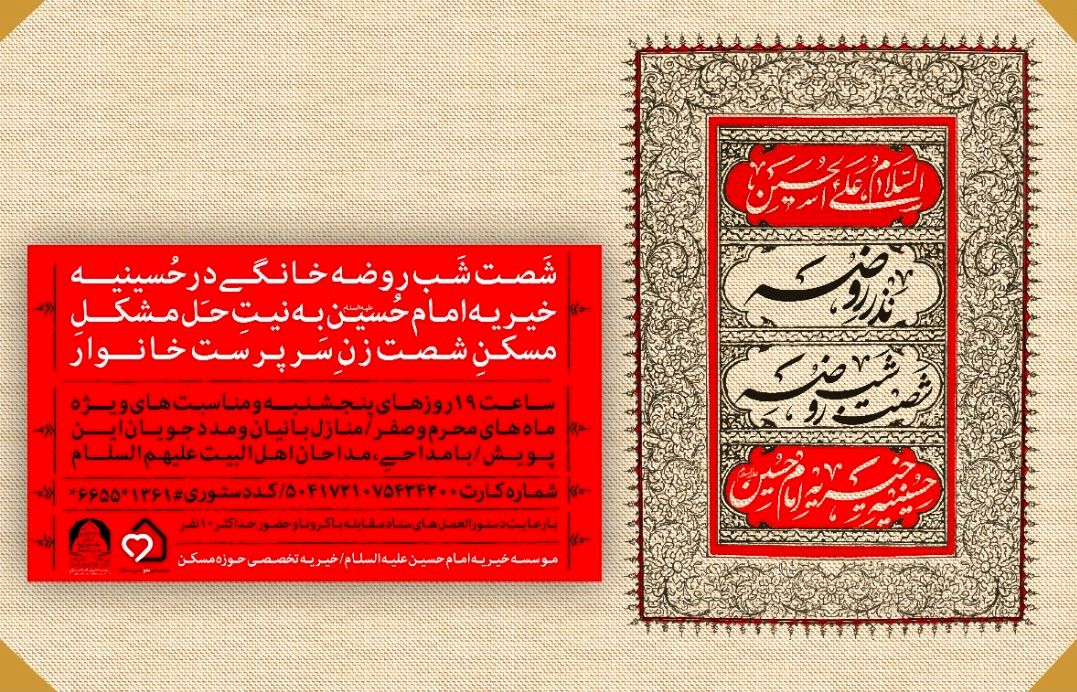 السلام علی الحسین
نذر روضه
شصت شب روضه
حسینیه خیریه امام حسین
شَصت شَب روضه خانگی در حُسینیه
خیریه امام حُسین علیه‌السلام به نیتِ حَل مشکلِ
مسکنِ شصت زنِ سَرپرست خانوار
ساعت ۱۹ روزهای پنجشنبه و مناسبت‌های ویژه
ماه‌های محرم و صفر / منازل بانیان و مددجویان این
پویش / با مداحی، مداحان اهل البیت علیهم السلام
شماره کارت ۵۰۴۱۷۲۱۰۷۵۴۳۴۲۰۰ / کد دستوری #۱۳۶۱*۶۶۵۵*
با رعایت دستورالعمل‌های ستاد مقابله با کرونا و حضور حداکثر ۱۰ نفر
موسسه خیریه امام حسین علیه السلام / خیریه تخصصی حوزه مسکن